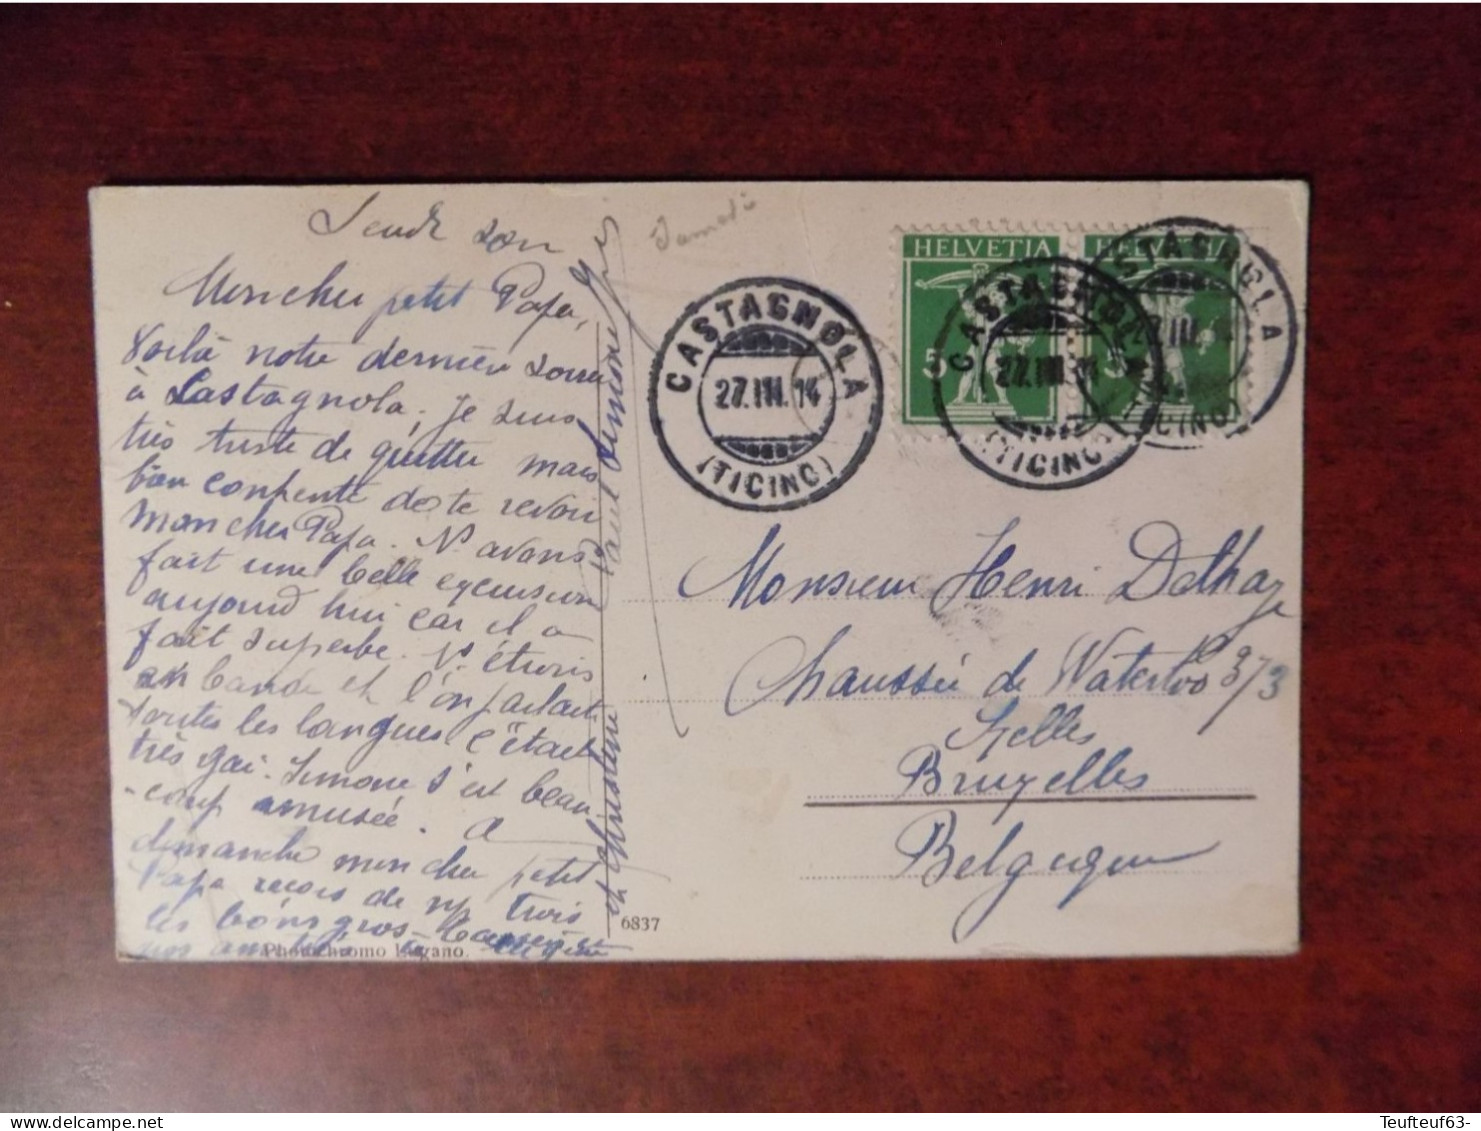 Jeudi soir
Mon cher petit Papa,
Voilà notre dernière soirée
à Castagnola, je suis
très triste de quitter mais
bien contente de te revoir
mon cher Papa. Ns avons
fait une belle excursion
aujourd hui car il a
fait superbe. Ns étions
en bande et l'on parlait
toutes les langues c'était
très gai. Simone s'est beau
-coup amusée. A
dimanche mon cher petit
Papa reçois de ns trois
les bons gros baisers
Photochromo Lugano.
6837
HELVETIA
5
HELVETIA
5
CASTAGNOLA
27.III.14
(TICINO)
CASTAGNOLA
27.III.14
(TICINO)
CASTAGNOLA
(TICINO)
Monsieur Henri Delhaye
Chaussée de Waterloo 373
Ixelles
Bruxelles
Belgique
Teufteuf63-
delcampe.net